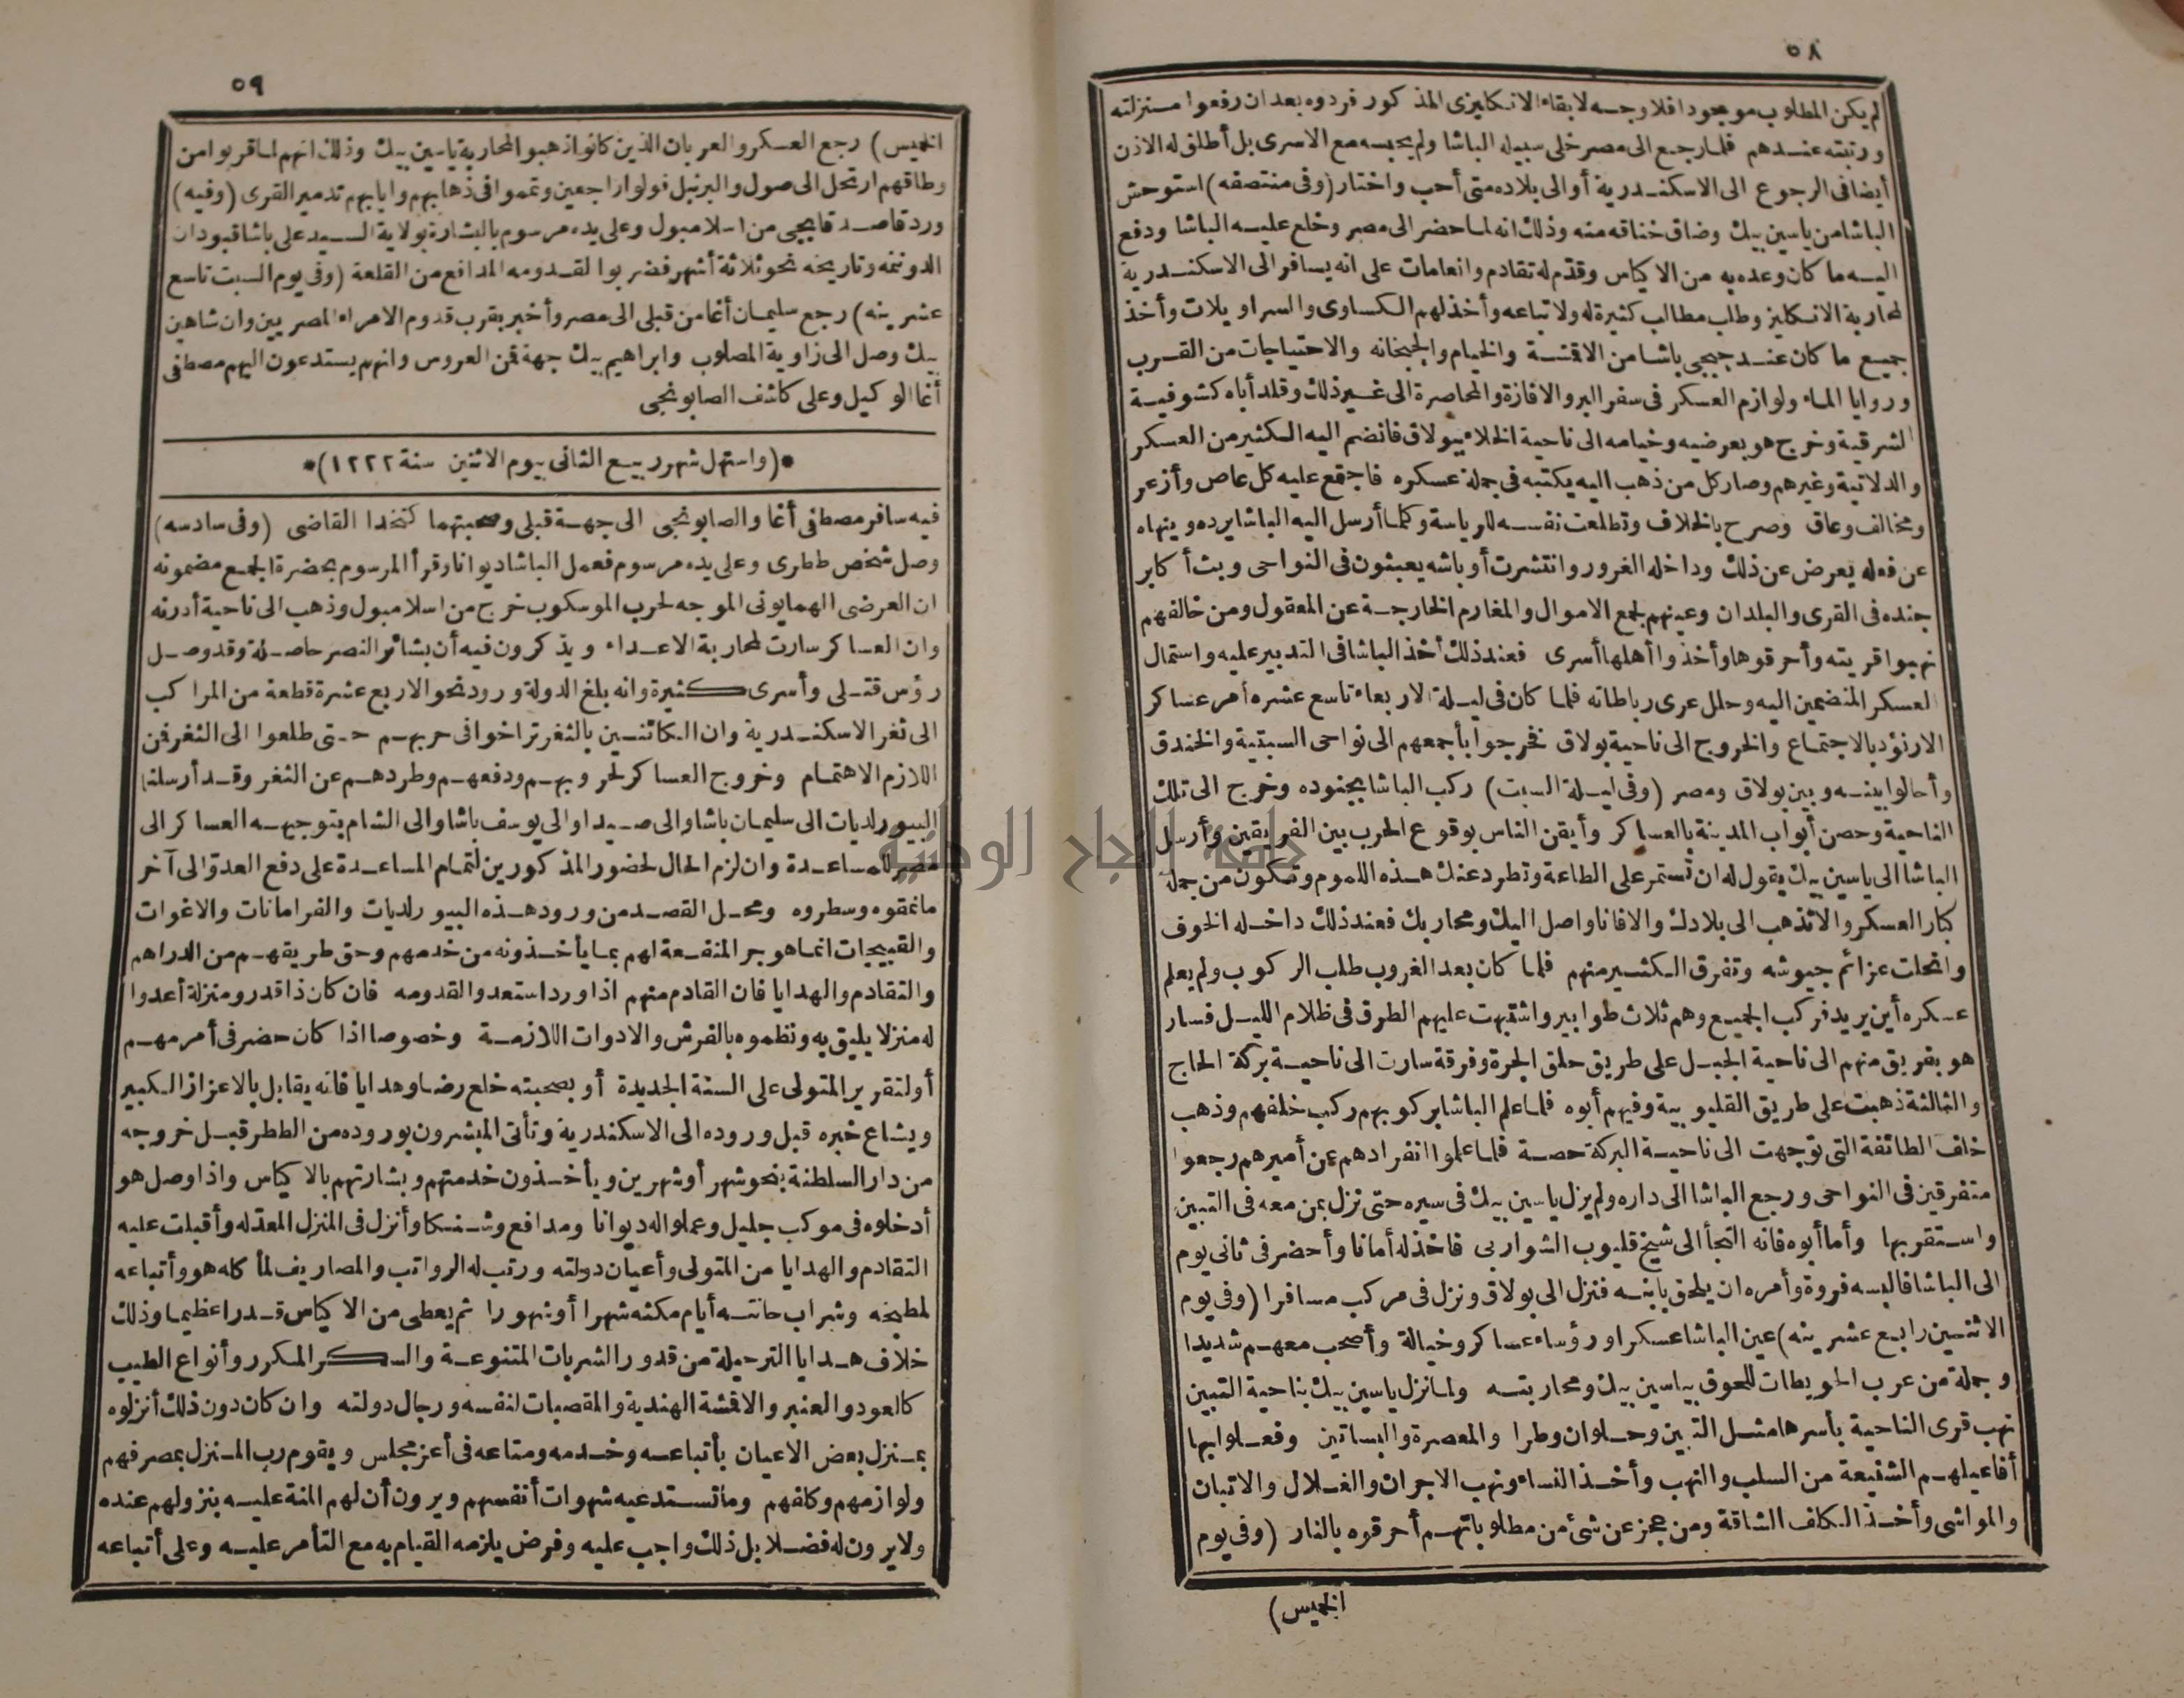 ٥٨
لم يكن المطلوب موجودا فلا وجه لابقاء الانكليزى المذكور فردوه بعد ان رفعوا منزلته
ورتبته عندهم فلما رجع الى مصر خلى سبيله الباشا ولم يحبسه مع الاسرى بل أطلق له الاذن
أيضا فى الرجوع الى الاسكندرية أو الى بلاده متى أحب واختار (وفى منتصفه) استوحش
الباشا من ياسين بيك وضاق خناقه منه وذلك انه لما حضر الى مصر وخلع عليه الباشا ودفع
اليه ما كان وعده به من الاكياس وقدّم له تقادم وانعامات على انه يسافر الى الاسكندرية
لمحاربة الانكليز وطلب مطالب كثيرة له ولاتباعه وأخذ لهم الكساوى والسراويلات وأخذ
جميع ما كان عند جبجى باشا من الاقشة والخيام والجبخانه والاحتياجات من القرب
وروايا الماء ولوازم العسكر فى سفر البر والافازة والمحاصرة الى غير ذلك وقلد أباه كشوفية
الشرقية وخرج هو بعرضيه وخيامه الى ناحية الخلاء ببولاق فانضم اليه الكثير من العسكر
والدلاتية وغيرهم وصار كل من ذهب اليه يكتبه فى جملة عسكره فاجتمع عليه كل عاص وأزعر
ومخالف وعاق وصرح بالخلاف وتطلعت نفسه للرياسة وكلما أرسل اليه الباشا يرده وينهاه
عن فعله يعرض عن ذلك وداخله الغرور وانتشرت أوباشه يعبثون فى النواحى وبث أكابر
جنده فى القرى والبلدان وعينهم لجمع الاموال والمغارم الخارجة عن المعقول ومن خالفهم
نهبوا قريته وأحرقوها وأخذوا أهلها أسرى فعند ذلك أخذ الباشا فى التدبير عليه واستمال
العسكر المنضمين اليه وحلل عرى رباطاته فلما كان فى ليلة الاربعاء تاسع عشره أمر عساكر
الارنؤد بالاجتماع والخروج الى ناحية بولاق فخرجوا بأجمعهم الى نواحى السبتية والخندق
وأحالوا بينه وبين بولاق ومصر (وفى ليلة السبت) ركب الباشا بجنوده وخرج الى تلك
الناحية وحصن أبواب المدينة بالعساكر وأيقن الناس بوقوع الحرب بين الفريقين وأرسل
الباشا الى ياسين بيك يقول له ان تستمر على الطاعة وتطرد عنك هذه اللموم وتكون من جملة
كبار العسكر والا تذهب الى بلادك والا فانا واصل اليك ومحاربك فعند ذلك داخله الخوف
وانحلت عزائم جيوشه وتفرق الكثير منهم فلما كان بعد الغروب طلب الركوب ولم يعلم
عسكره أين يريد فركب الجميع وهم ثلاث طوابير واشتبهت عليهم الطرق فى ظلام الليل فسار
هو بفريق منهم الى ناحية الجبل على طريق حلق الجرة وفرقة سارت الى ناحية بركة الحاج
والثالثة ذهبت على طريق القليوبية وفيهم أبوه فلما علم الباشا بركوبهم ركب خلفهم وذهب
خلف الطائفة التى توجهت الى ناحية البركة حصة فلما علموا انفرادهم عن أميرهم رجعوا
متفرقين فى النواحى ورجع الباشا الى داره ولم يزل ياسين بيك فى سيره حتى نزل بمن معه فى التبين
واستقر بها وأما أبوه فانه التجأ الى شيخ قليوب الشواربى فاخذ له أمانا وأحضر فى ثانى يوم
الى الباشا فالبسه فروة وأمره ان يلحق بابنه فنزل الى بولاق ونزل فى مركب مسافرا (وفى يوم
الاثنين رابع عشرينه) عين الباشا عسكرا ورؤساء عساكر وخيالة وأصحب معهم شديدا
وجملة من عرب الحويطات للحوق بياسين بيك ومحاربته ولما نزل ياسين بيك بناحية التبين
نهب قرى الناحية بأسرها مثل التبين وحلوان وطرا والمعصرة والبساتين وفعلوا بها
أفاعيلهم الشنيعة من السلب والنهب وأخذ النساء ونهب الاجران والغلال والاتبان
والمواشى وأخذ الكلف الشاقة ومن عجز عن شئ من مطلوباتهم أحرقوه بالنار (وفى يوم
الخميس)
٥٩
الخميس) رجع العسكر والعربات الذين كانوا ذهبوا لمحاربة ياسين بيك وذلك انهم لما قربوا من
وطاقهم ارتحل الى صول والبرنبل فولوا راجعين وتمموا فى ذهابهم وايابهم تدمير القرى (وفيه)
ورد قاصد قابجى من اسلامبول وعلى يده مرسوم بالبشارة بولاية السيد على باشا قبودان
الدوننمه وتاريخه نحو ثلاثة أشهر فضربوا لقدومه المدافع من القلعة (وفى يوم السبت تاسع
عشرينه) رجع سليمان أغا من قبلى الى مصر وأخبر بقرب قدوم الامراء المصريين وان شاهين
بيك وصل الى زاوية المصلوب وابراهيم بيك جهة قمن العروس وانهم يستدعون اليهم مصطفى
أغا الوكيل وعلى كاشف الصابونجى
*(واستهل شهر ربيع الثانى بيوم الاثنين سنة ١٢٢٢)*
فيه سافر مصطفى أغا والصابونجى الى جهة قبلى وصحبتهما كتخدا القاضى (وفى سادسه)
وصل شخص ططرى وعلى يده مرسوم فعمل الباشا ديوانا وقرأ المرسوم بحضرة الجمع مضمونه
ان العرضى الهمايونى الموجه لحرب الموسكوب خرج من اسلامبول وذهب الى ناحية أدرنه
وان العساكر سارت لمحاربة الاعداء ويذكرون فيه أن بشائر النصر حاصلة وقد وصل
رؤس قتلى وأسرى كثيرة وانه بلغ الدولة ورود نحو الاربع عشرة قطعة من المراكب
الى ثغر الاسكندرية وان الكائنين بالثغر تراخوا فى حربهم حتى طلعوا الى الثغر فمن
اللازم الاهتمام وخروج العساكر لحروبهم ودفعهم وطردهم عن الثغر وقد أرسلنا
البيورلديات الى سليمان باشا والى صيدا والى يوسف باشا والى الشام بتوجيه العساكر الى
مصر للمساعدة وان لزم الحال لحضور المذكورين لتمام المساعدة على دفع العدوّ الى آخر
ما نمقوه وسطروه ومحل القصد من ورود هذه البيورلديات والفرامانات والاغوات
والقبيجيات انما هو جر المنفعة لهم بما يأخذونه من خدمهم وحق طريقهم من الدراهم
والتقادم والهدايا فان القادم منهم اذا ورد استعدوا لقدومه فان كان ذا قدر ومنزلة أعدوا
له منزلا يليق به ونظموه بالفرش والادوات اللازمة وخصوصا اذا كان حضر فى أمر مهم
أو لتقرير المتولى على السنة الجديدة أو بصحبته خلع رضا وهدايا فانه يقابل بالاعزاز الكبير
ويشاع خبره قبل وروده الى الاسكندرية وتأتى المبشرون بوروده من الططر قبل خروجه
من دار السلطنة بنحو شهر أو شهرين ويأخذون خدمتهم وبشارتهم بالاكياس واذا وصل هو
أدخلوه فى موكب جليل وعملوا له ديوانا ومدافع وشنكا وأنزل فى المنزل المعدّ له وأقبلت عليه
التقادم والهدايا من المتولى وأعيان دولته ورتب له الرواتب والمصاريف لمأكله هو وأتباعه
لمطبخه وشراب حانته أيام مكثه شهرا أو شهورا ثم يعطى من الاكياس قدرا عظيما وذلك
خلاف هدايا الترحيلة من قدور الشربات المتنوعة والسكر المكرر وأنواع الطيب
كالعود والعنبر والاقشة الهندية والمقصبات لنفسه ورجال دولته وان كان دون ذلك أنزلوه
بمنزل بعض الاعيان بأتباعه وخدمه ومتاعه فى أعز مجلس ويقوم رب المنزل بمصرفهم
ولوازمهم وكلفهم وما تستدعيه شهوات أنفسهم ويرون أن لهم المنة عليه بنزولهم عنده
ولا يرون له فضلا بل ذلك واجب عليه وفرض يلزمه القيام به مع التأمر عليه وعلى أتباعه
جامعة النجاح الوطنية